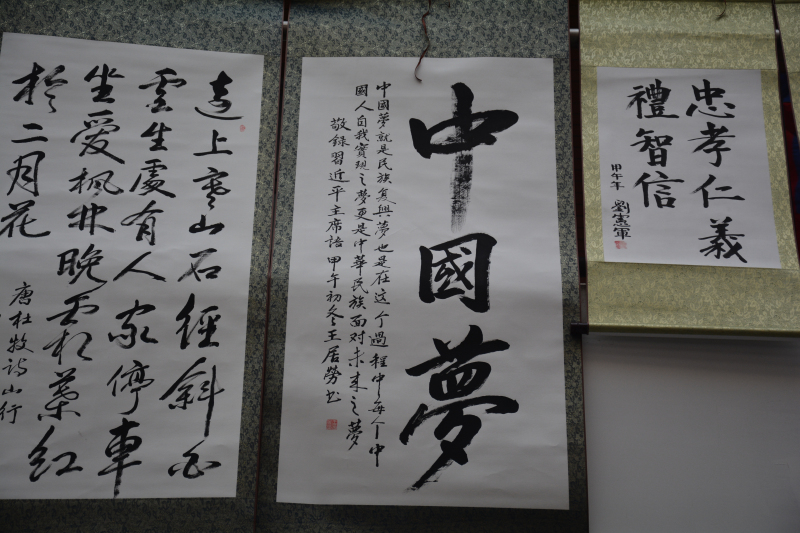 忠孝仁義
禮智信
甲午年 劉憲軍
中國夢
中國夢就是民族复興夢也是在这个過程中每个中
國人自我實現之夢更是中華民族面对未来之夢
敬録習近平主席語 甲午初冬王居勞书
遠上寒山石徑斜白
雲生處有人家停車
坐愛楓林晚霜葉紅
於二月花
唐杜牧诗山行